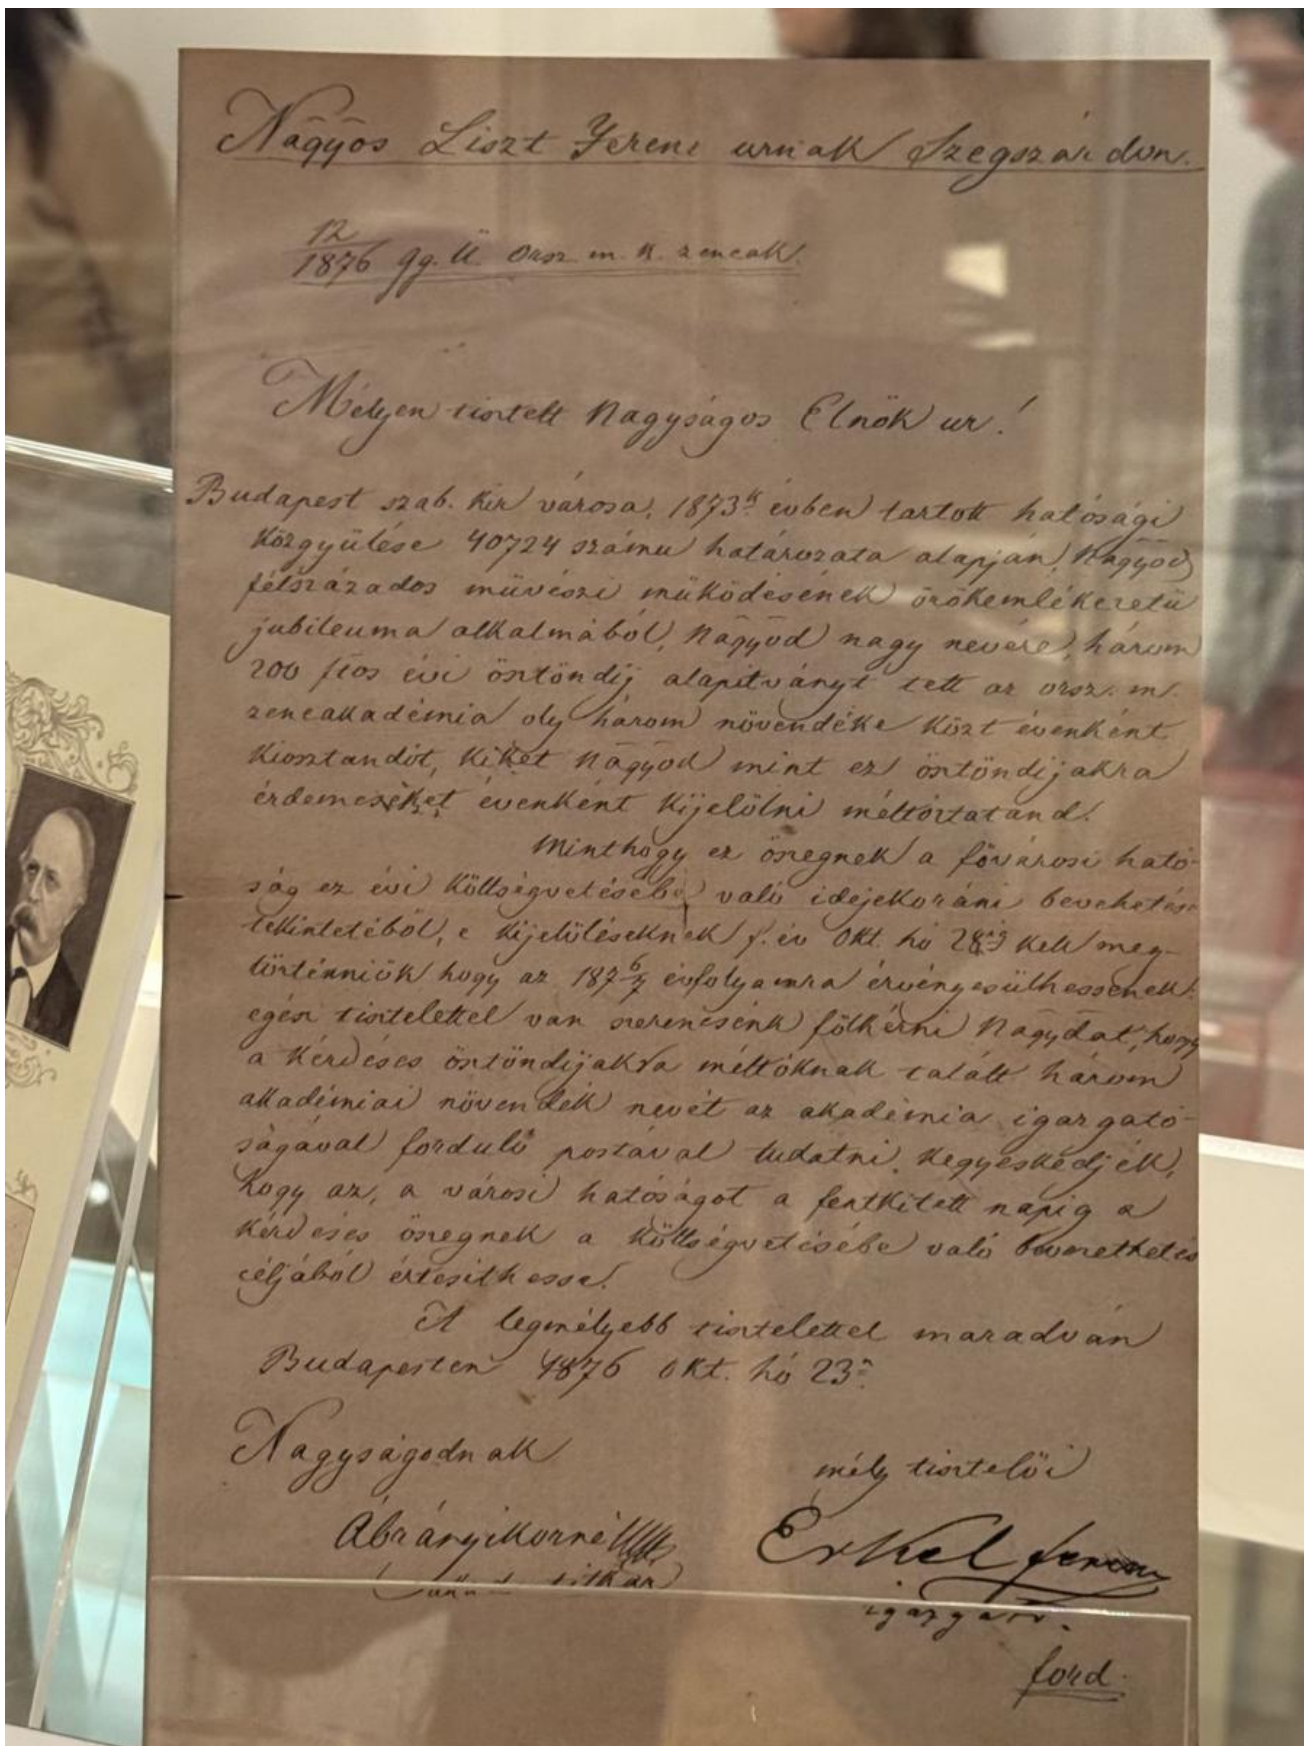 Nāgyōs Liszt Ferenc urnak Szegszárdon.
12
1876 gg. ü. Orsz m. k. zeneak.
Mélyen tisztelt Nagyságos Elnök ur!
Budapest szab. kir városa, 1873ik évben tartott hatósági
közgyülése 40724 számu határozata alapján, Nāgyōd
félszázados müvészi müködésének örökemlékezetü
jubileuma alkalmából, Nāgyōd nagy nevére, három
200 ftos évi ösztöndij alapitványt tett az orsz. m.
zeneakadémia oly három növendéke közt évenként
kiosztandót, kiket Nāgyōd mint ez ösztöndijakra
érdemeseket évenként kijelölni méltóztatand.
Minthogy ez öszegnek a fővárosi ható-
ság ez évi költségvetésebe való idejekoráni bevehetése
tekintetéből, e kijelöléseknek f. év Okt. hó 28ig kell meg-
történniök hogy az 1876/7 évfolyamra érvényesülhessenek:
egész tisztelettel van szerencsénk fölkérni Nāgydat, hogy
a kérdéses ösztöndijakra méltóknak talált három
akadémiai növendék nevét az akadémia igazgató-
ságával forduló postával tudatni kegyeskedjék,
hogy az, a városi hatóságot a fentkitett napig a
kérdéses öszegnek a költségvetésébe való bevezethetés
céljából értesithesse.
A legmélyebb tisztelettel maradván
Budapesten 1876 Okt. hó 23án
Nagyságodnak
mély tisztelői
Ábrányi Kornél
titkár
Erkel Ferenc
igazgató.
ford.